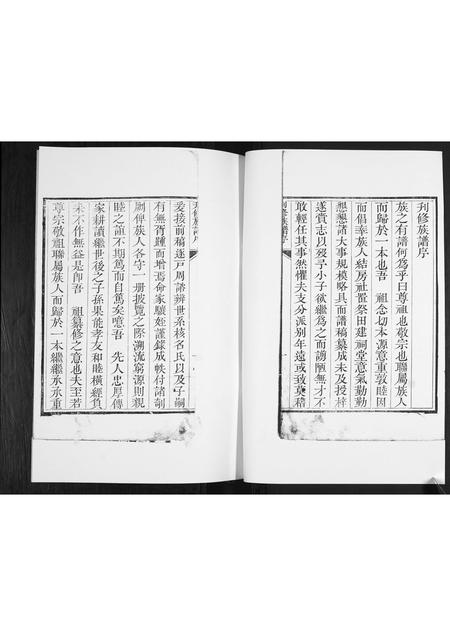 刋修族譜序
族之有譜何為乎曰尊祖也敬宗也聯屬族人
而歸於一本也吾　祖念切本源意重敦睦因
而倡率族人結房社置祭田建祠堂意氣勤勤
懇懇諸大事規模略具而譜稿纂成未及授梓
遂賫志以歿予小子欲繼為之而謭陋無才不
敢輕任其事然懼夫支分派別年遠或致莫稽
刋修族譜序
爰接前稿逐戸周諮辨世系核名氏以及子嗣
有無胥踵而增焉命家驤姪謹錄成帙付諸剞
劂俾族人各守一册披覽之際溯流窮源則親
睦之誼不期篤而自篤矣噫吾　先人忠厚傳
家耕讀繼世後之子孫果能孝友和睦橫經負
耒不作無益是即吾　祖纂修之意也夫至若
尊宗敬祖聯屬族人而歸於一本繼繼承承重